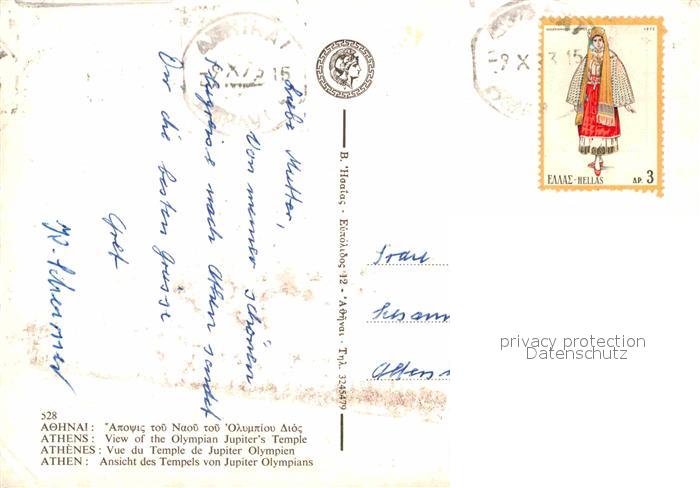 Liebe Mutter,
Von meiner schönen
Flugreise nach Athen sendet
Dir die besten Grüsse
Gret
528
ΑΘΗΝΑΙ : Ἄποψις τοῦ Ναοῦ τοῦ Ὀλυμπίου Διός
ATHENS : View of the Olympian Jupiter's Temple
ATHÈNES : Vue du Temple de Jupiter Olympien
ATHEN : Ansicht des Tempels von Jupiter Olympians
Β. Ἡσαΐας - Εὐπόλιδος 12 - Ἀθῆναι - Τηλ. 3245479
1972
ΕΛΛΑΣ-HELLAS ΔΡ. 3
Frau
privacy protection
Datenschutz